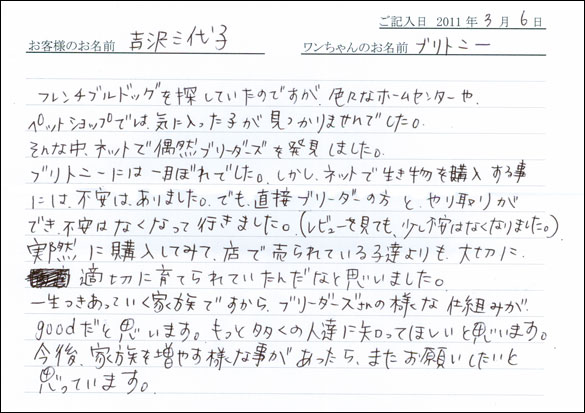 ご記入日 2011年3月6日
お客様のお名前 吉沢三代子 ワンちゃんのお名前 ブリトニー
フレンチブルドッグを探していたのですが、色々なホームセンターや、
ペットショップでは、気に入った子が見つかりませんでした。
そんな中、ネットで偶然ブリーダーズを発見しました。
ブリトニーには一目ぼれでした。しかし、ネットで生き物を購入する事
には、不安は、ありました。でも、直接ブリーダーの方と、やり取りが
でき、不安はなくなって行きました。(レビューを見ても、少し不安はなくなりました。)
実際に購入してみて、店で売られている子達よりも、大切に、
適切に育てられていたんだなと思いました。
一生つきあっていく家族ですから、ブリーダーズさんの様な仕組みが、
goodだと思います。もっと多くの人達に知ってほしいと思います。
今後、家族を増やす様な事があったら、またお願いしたいと
思っています。